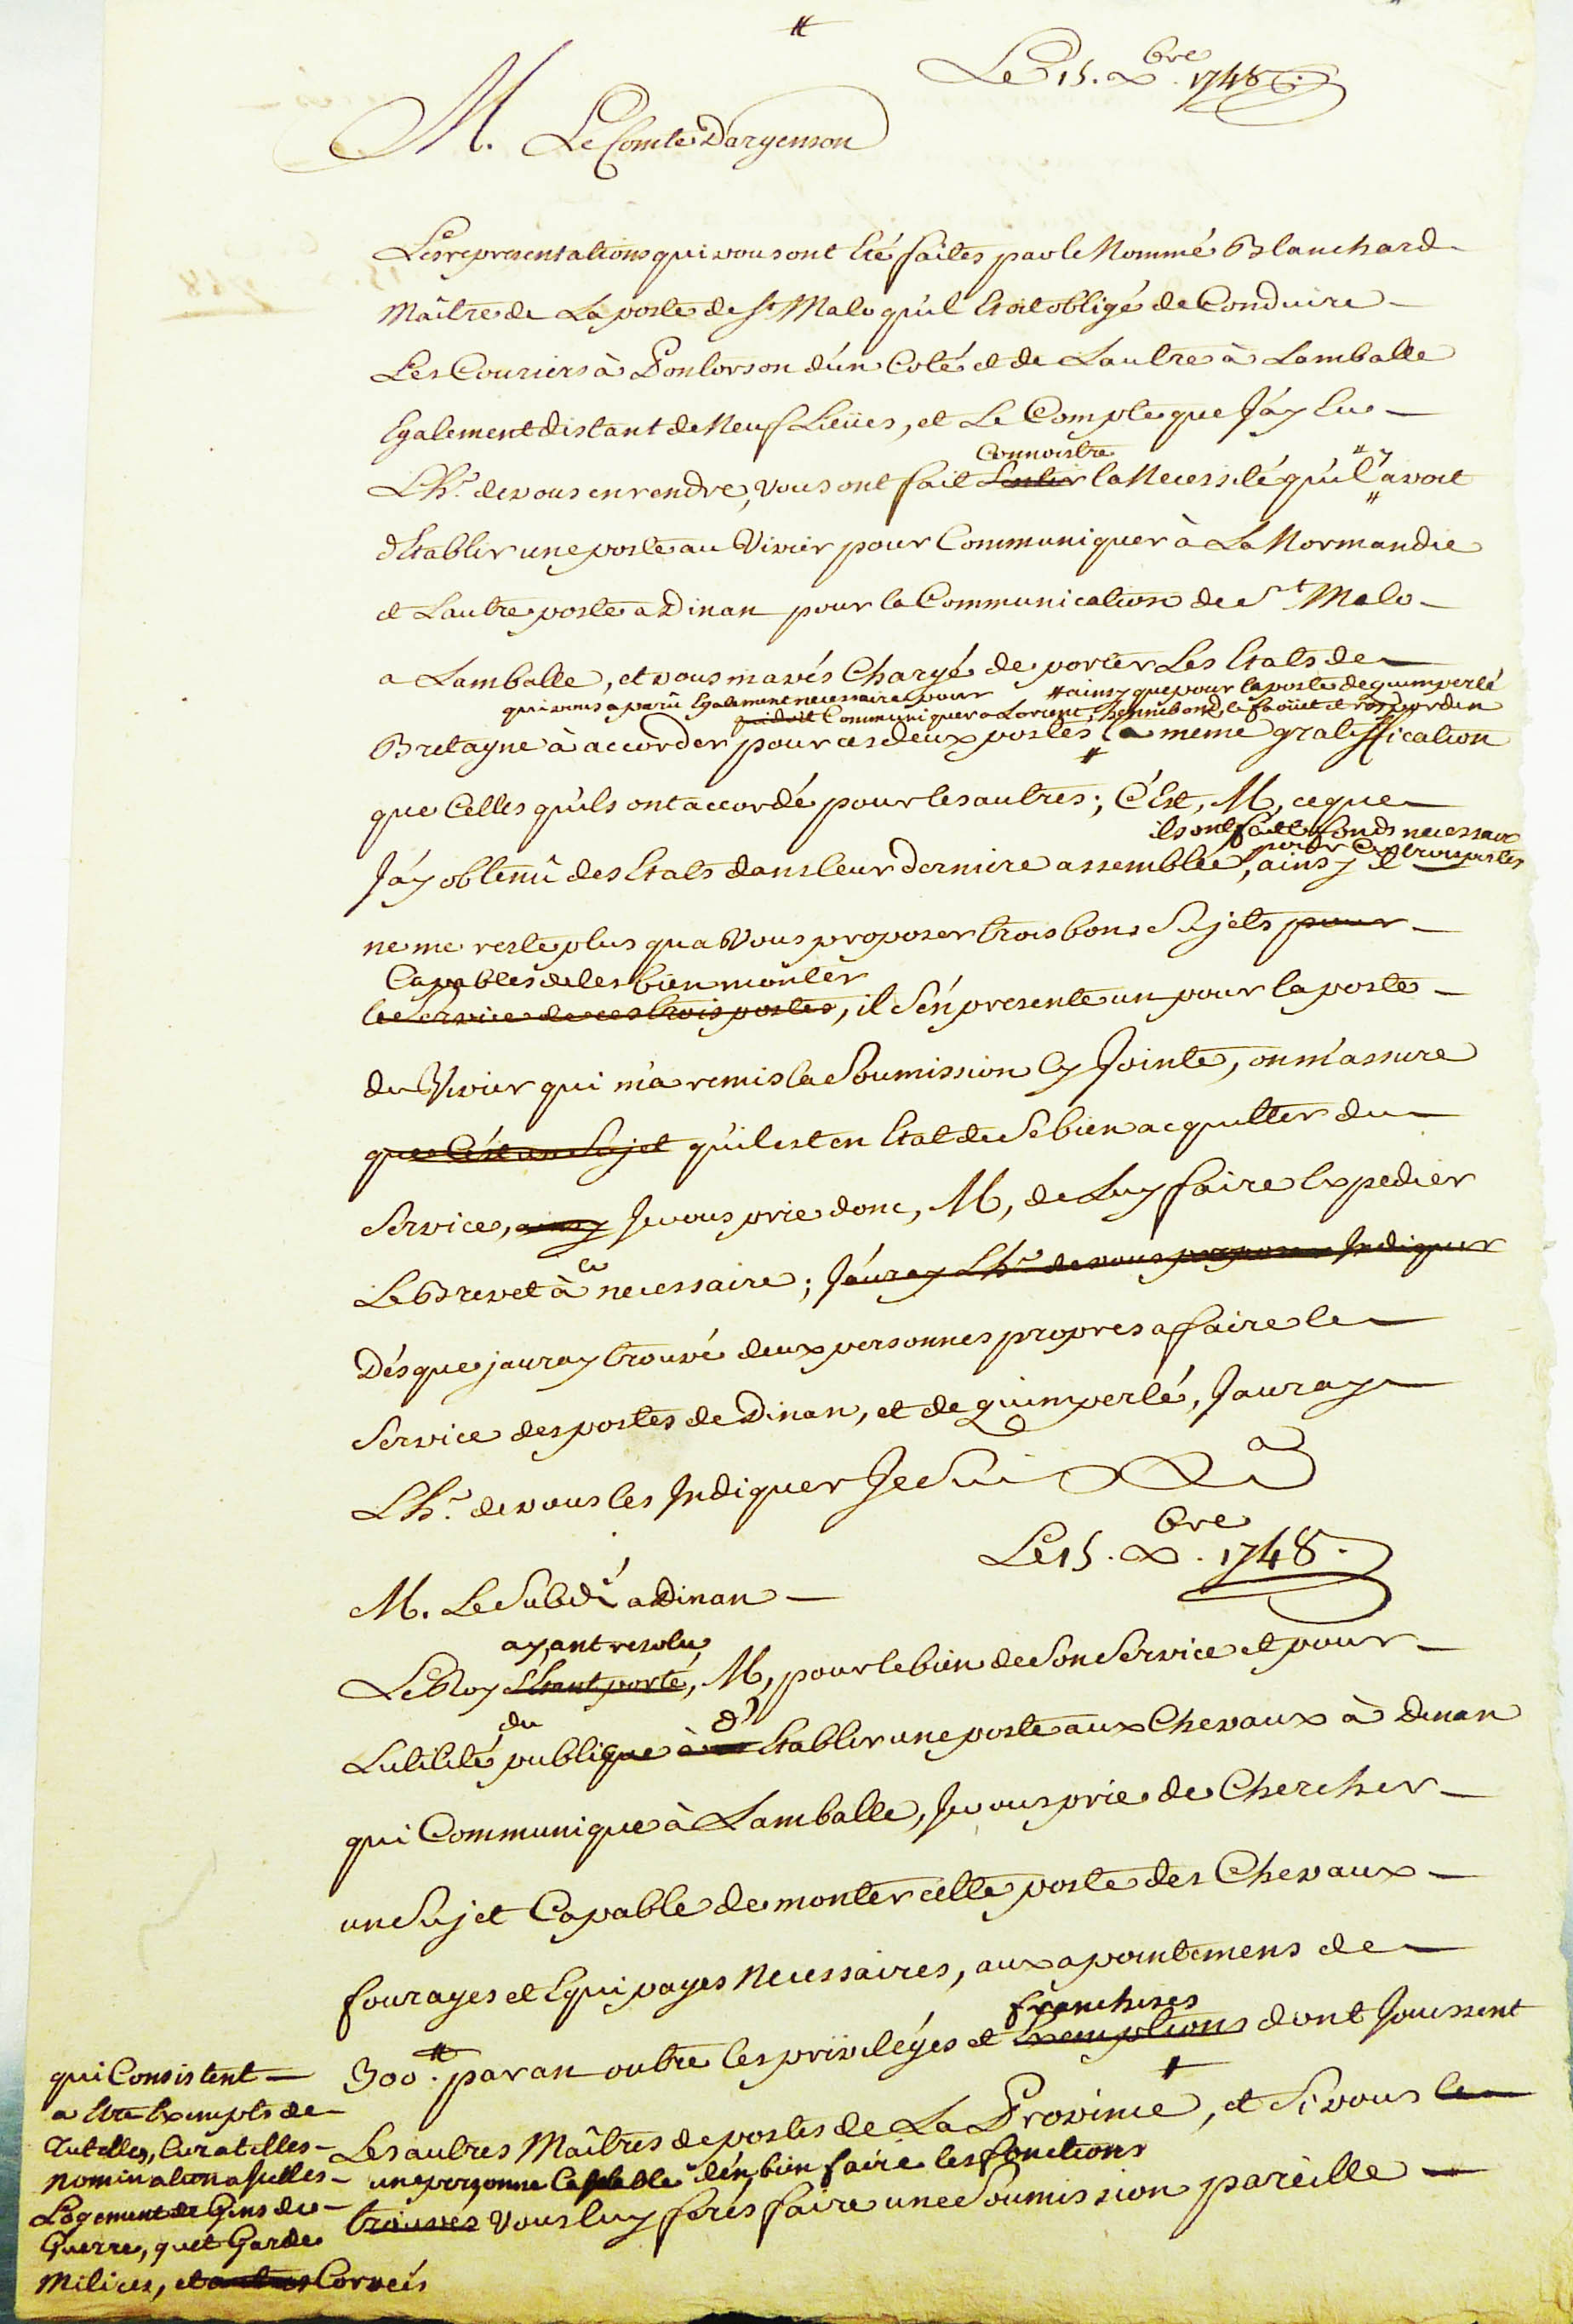 #
Le 15. xbre. 1748.
M. Le Comte Dargenson
Les representations qui vous ont Eté faites par le Nommé Blanchard
Maître de La poste de St Malo qu'il Etoit obligé de Conduire
Les Couriers à Pontorson d'un Coté et de Lautre à Lamballe
Egalement distant de Neuf Lieües, et Le Compte que J'ay Eu
connoistre
L'hr. de vous en rendre, vous ont fait Sentir la Necessité qu'il y avoit
d'Etablir une poste au Vivier pour Communiquer à La Normandie
et Lautre poste a Dinan pour la Communication de St Malo
a Lamballe, et vous m'avés Chargé de porter Les Etats de
qui vous a parû Egalement necessaire pour # ainsy que pour la poste de quimperlé
qui doit Communiquer a Lorient, hennebond, le faoüet et rosporden
Bretagne à accorder pour ces deux postes la meme gratiffication
#
que Celles qu'ils ont accordé pour les autres; C'Est, M, ce que
ils ont fait le fonds necessaire
pour ces trois postes
J'ay obtenû des Etats dans leur derniere assemblée, ainsy il
ne me reste plus qua Vous proposer trois bons Sujets pour
Capables de les bien monter
le Service de ces trois postes, il S'en presente un pour la poste
du Vivier qui m'a remis la Soumission Cy Jointe, on m'assure
que C'est un Sujet qu'il est en Etat de Se bien acquitter du
Service, ainsy Je vous prie donc, M, de Luy faire Expedier
ce
Le Brevet à necessaire; J'auray L'hr de vous proposer Indiquer
Dés que jauray trouvé deux personnes propres a faire le
Service des postes de Dinan, et de quimperlé, Jauray
L'hr. de vous les Indiquer Je Sui
Le 15. xbre. 1748.
M. Le Subdé a Dinan
ayant resolu
Le Roy S'Etant porté, M, pour le bien de Son Service et pour
du d'
Lutilité publique à Etablir une poste aux Chevaux à dinan
qui Communique à Lamballe, Je vous prie de Chercher
un Sujet Capable de monter cette poste des Chevaux
fourages et Equipages Necessaires, aux apointemens de
franchises
300.# par an outre les privilêges et Exemptions dont Jouissent
#
Les autres Maîtres de postes de La Province, et Si vous le
une personne Capable d'en bien faire les fonctions
trouvés vous luy ferés faire une Soumission pareille
qui Consistent
a Etre Exempts de
Tutelles, Curatelles
Nomination a Icelles
Logement de Gens de
Guerre, guet Garde
Milices, et autres Corveés